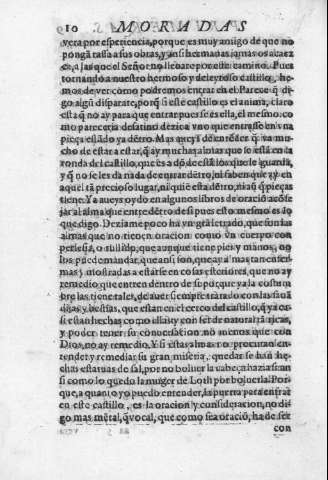 10 MORADAS
vera por esperiencia, porque es muy amigo de que no
pongã tassa a sus obras, y ansi hermanas jamas os acaez
ca, a las que el Señor no lleuare por este camino. Pues
tornando a nuestro hermoso y deleytoso castillo, he-
mos de ver como podremos entrar en el. Parece q̃ di
go algũ disparate, porq̃ si este castillo es el anima, claro
esta q̃ no ay para que entrar pues se es ella, el mesmo: co
mo pareceria desatino dezir a vno que entrasse en vna
pieça estãdo ya dẽtro. Mas aueys de entẽder q̃ va mu-
cho de estar a estar, q̃ ay muchas almas que se estã en la
ronda del castillo, que es a dõ de estã los que le guardã,
y q̃ no se les da nada de entrar dẽtro, ni saben que ay en
aquel tã precioso lugar, ni quiẽ esta dẽtro, ni aũ q̃ pieças
tiene. Ya aueys oydo en algunos libros de oraciõ acõse
jar al alma que entre dẽtro de si pues esto mesmo es lo
que digo. Deziame poco ha vn grã letrado, que son las
almas que no tienen oracion como vn cuerpo con
perlesia, o tullido, que aunque tiene pies y manos, no
los puede mandar, que ansi son, que ay almas tan enfer-
mas y mostradas a estarse en cosas esteriores, que no ay
remedio, que entren dentro de si porque ya la costum
bre las tiene tales, de auer siempre tratado con las sauã
dijas y bestias, que estan en el cerco del castillo, q̃ ya ca-
si estan hechas como ellas: y con ser de natural tã ricas,
y poder tener su conuersacion no menos que con
Dios, no ay remedio. Y si estas almas no procurã en-
tender y remediar su gran miseria, quedar se han he-
chas estatuas de sal, por no boluer la cabeça hazia si: an
si como lo quedo la muger de Loth por boluerla. Por-
que, a quanto yo puedo entender, la puerta para entrar
en este castillo, es la oracion y consideracion, no di
go mas mẽtal, q̃ vocal, que como sea oraciõ, ha de ser
con